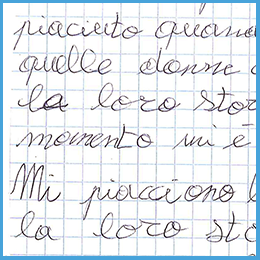 piaciuto quand
quelle donne
la loro stor
momento mi è
Mi piacciono
la loro sto